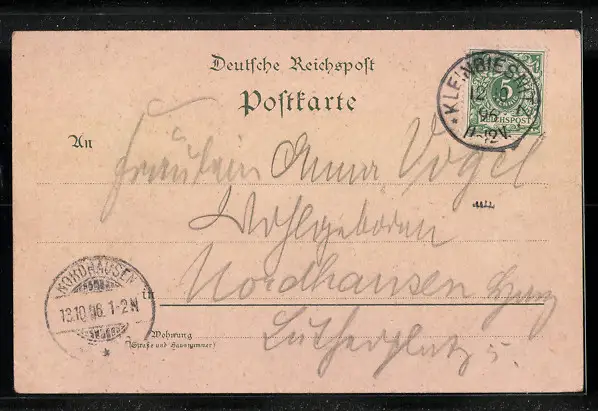 Deutsche Reichspost
Postkarte
KLEINBIESNITZ
12
96
11-12V.
5
REICHSPOST
An
Fräulein Anna Vogel
Wohlgeboren
in Nordhausen Harz
Lutherplatz 5.
Wohnung
(Straße und Hausnummer)
NORDHAUSEN
13.10.96.1-2N